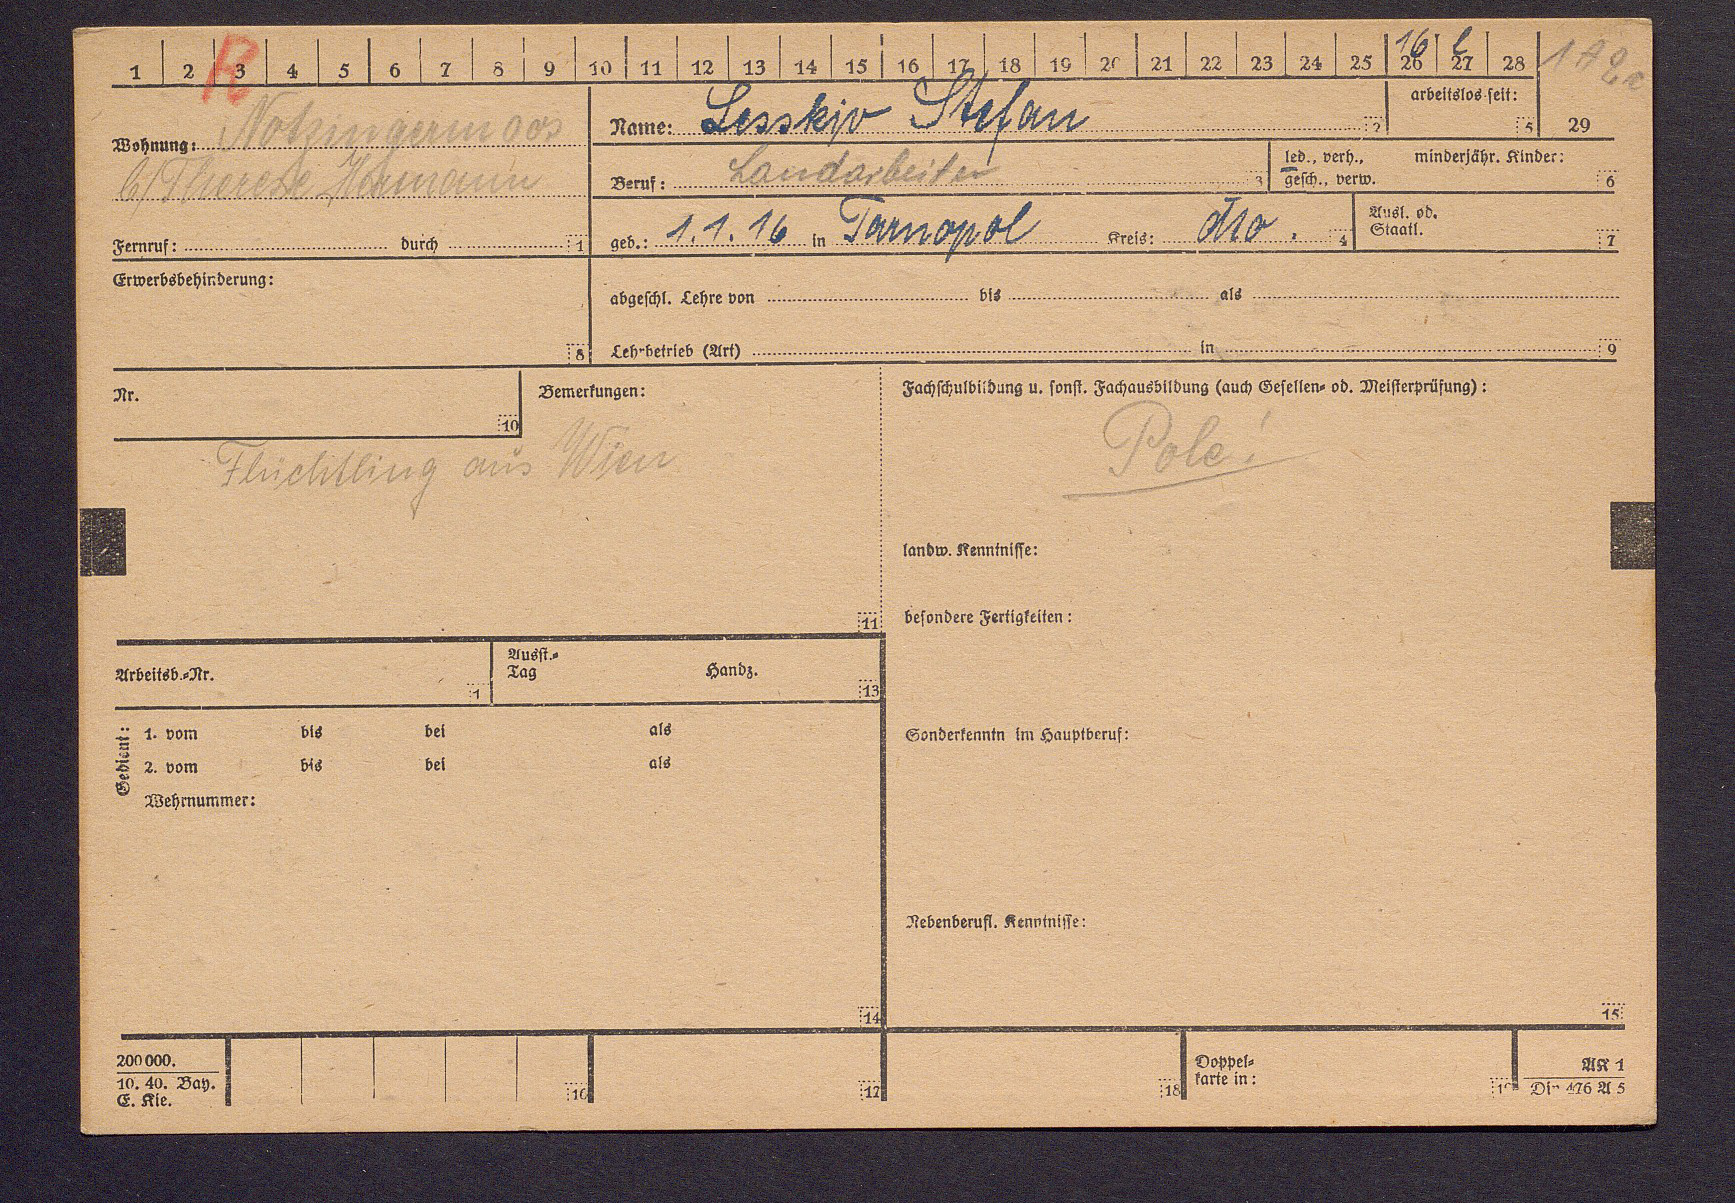 1 2 3 4 5 6 7 8 9 10 11 12 13 14 15 16 17 18 19 20 21 22 23 24 25 26 27 28
R
16 l
Wohnung: Notzingermoos
b/ Therese Hermann
Fernruf: durch 1
Name: Lesskiv Stefan 2
arbeitslos seit: 5
29
Beruf: Landarbeiter 3
led., verh., gesch., verw.
minderjähr. Kinder: 6
geb.: 1.1.16 in Tarnopol Kreis: dto. 4
Ausl. od. Staatl. 7
Erwerbsbehinderung: 8
abgeschl. Lehre von bis als
Lehrbetrieb (Art) in 9
Nr. 10
Bemerkungen:
Flüchtling aus Wien
11
Fachschulbildung u. sonst. Fachausbildung (auch Gesellen- od. Meisterprüfung):
Pole!
landw. Kenntnisse:
besondere Fertigkeiten:
Arbeitsb.-Nr. 1
Ausst.-Tag Handz. 13
Gedient:
1. vom bis bei als
2. vom bis bei als
Wehrnummer:
14
Sonderkenntn im Hauptberuf:
Nebenberufl. Kenntnisse:
15
200 000.
10. 40. Bay.
E. Kie.
16 17 18
Doppelkarte in:
AK 1
Din 476 A 5